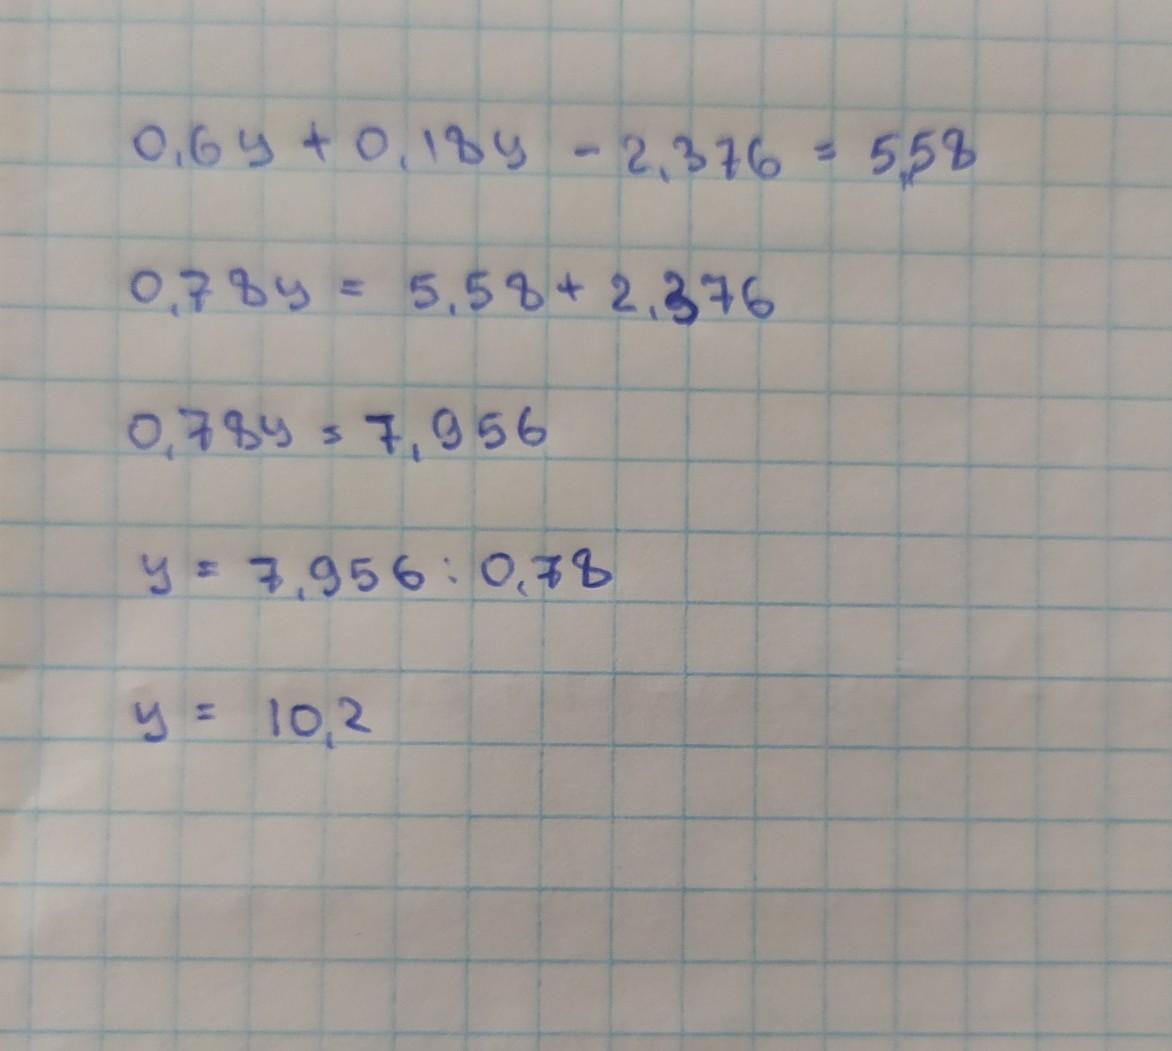 0,6y + 0,18y - 2,376 = 5,58
0,78y = 5,58 + 2,376
0,78y = 7,956
y = 7,956 : 0,78
y = 10,2